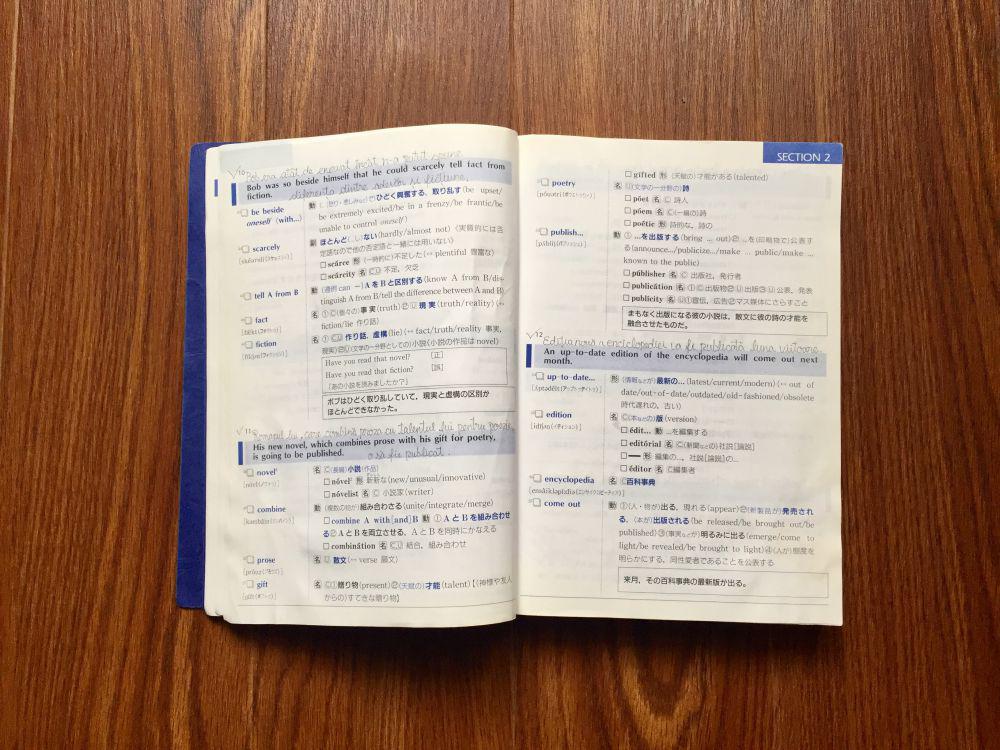 10
Bob era atât de încât n-a putut spune
Bob was so beside himself that he could scarcely tell fact from
fiction.
diferența dintre și ficțiune.
be beside
oneself (with...)
動 (…)でひどく興奮する、取り乱す(be upset/
be extremely excited/be in a frenzy/be frantic/be
unable to control oneself)
scarcely
副 ほとんど(…し)ない(hardly/almost not)〈実質的には否
定語なので他の否定語と一緒には用いない〉
scárce 形 (一時的に)不足した(↔ plentiful 豊富な)
scárcity 名 CU 不足、欠乏
tell A from B
動 (通例 can ~)AをBと区別する(know A from B/dis-
tinguish A from B/tell the difference between A and B)
fact
名 ①C(個々の)事実(truth)②U現実(truth/reality)(↔
fiction/lie 作り話)
fiction
名 ①CU作り話、虚構(lie)(↔ fact/truth/reality 事実、
現実)②U(文学の一分野としての)小説〈小説の作品は novel〉
Have you read that novel? [正]
Have you read that fiction? [誤]
「あの小説を読みましたか?」
ボブはひどく取り乱していて、現実と虚構の区別が
ほとんどできなかった。
11
Romanul lui, care combină proza cu talentul lui pentru poezie
His new novel, which combines prose with his gift for poetry,
is going to be published.
o să fie publicat.
novel¹
名 C(長編)小説(作品)
nóvel² 形 斬新な(new/unusual/innovative)
nóvelist 名 C 小説家(writer)
combine
動 (複数の物が)組み合わさる(unite/integrate/merge)
combine A with[and] B 動 ①AとBを組み合わせ
る②AとBを両立させる、AとBを同時にかなえる
combinátion 名 CU 結合、組み合わせ
prose
名 U 散文(↔ verse 韻文)
gift
名 C①贈り物(present)②(天賦の)才能(talent)【(神様や友人
からの)すてきな贈り物】
SECTION 2
gífted 形 (天賦の)才能がある(talented)
poetry
名 U(文学の一分野の)詩
póet 名 C 詩人
póem 名 C(一編の)詩
poétic 形 詩的な、詩の
publish...
動 ①…を出版する(bring ... out)②…を(印刷物で)公表す
る(announce.../publicize.../make ... public/make ...
known to the public)
públisher 名 C 出版社、発行者
publicátion 名 ①C出版物②U出版③U公表、発表
publícity 名 U①宣伝、広告②マス媒体にさらすこと
まもなく出版になる彼の小説は、散文に彼の詩の才能を
融合させたものだ。
12
Ediția nouă a enciclopediei va fi publicată luna viitoare.
An up-to-date edition of the encyclopedia will come out next
month.
up-to-date...
形 (情報などが)最新の…(latest/current/modern)(↔ out of
date/out-of-date/outdated/old-fashioned/obsolete
時代遅れの、古い)
edition
名 C(本などの)版(version)
édit... 動 …を編集する
editórial 名 C(新聞などの)社説[論説]
━ 形 編集の…、社説[論説]の…
éditor 名 C編集者
encyclopedia
名 C百科事典
come out
動 ①(人・物が)出る、現れる(appear)②(新製品が)発売され
る、(本が)出版される(be released/be brought out/be
published)③(事実などが)明るみに出る(emerge/come to
light/be revealed/be brought to light)④(人が)態度を
明らかにする、同性愛者であることを公表する
来月、その百科事典の最新版が出る。